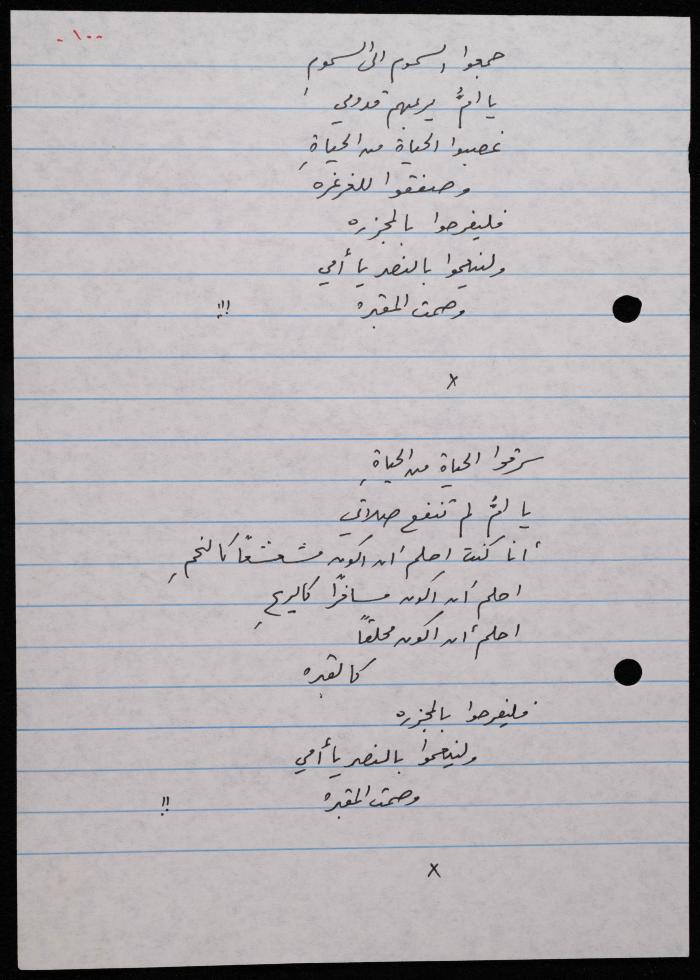 -١٠٠-
جمعوا السموم الى السمومِ
يا امُّ يرعبهم قدومي
غصبوا الحياة من الحياةِ
وصفقوا للغرغره
فليفرحوا بالمجزره
ولينعموا بالنصر يا أمي
وصمت المقبره !!!
x
سرقوا الحياة من الحياةِ
يا امُّ لم تنفع صلاتي
أنا كنت احلم أن اكون مشعشعًا كالنجمِ
احلم أن اكون مسافرًا كالريحِ
احلم أن اكون محلقاً
كالقبره
فليفرحوا بالمجزره
ولينعموا بالنصر يا أمي
وصمت المقبره !!
x